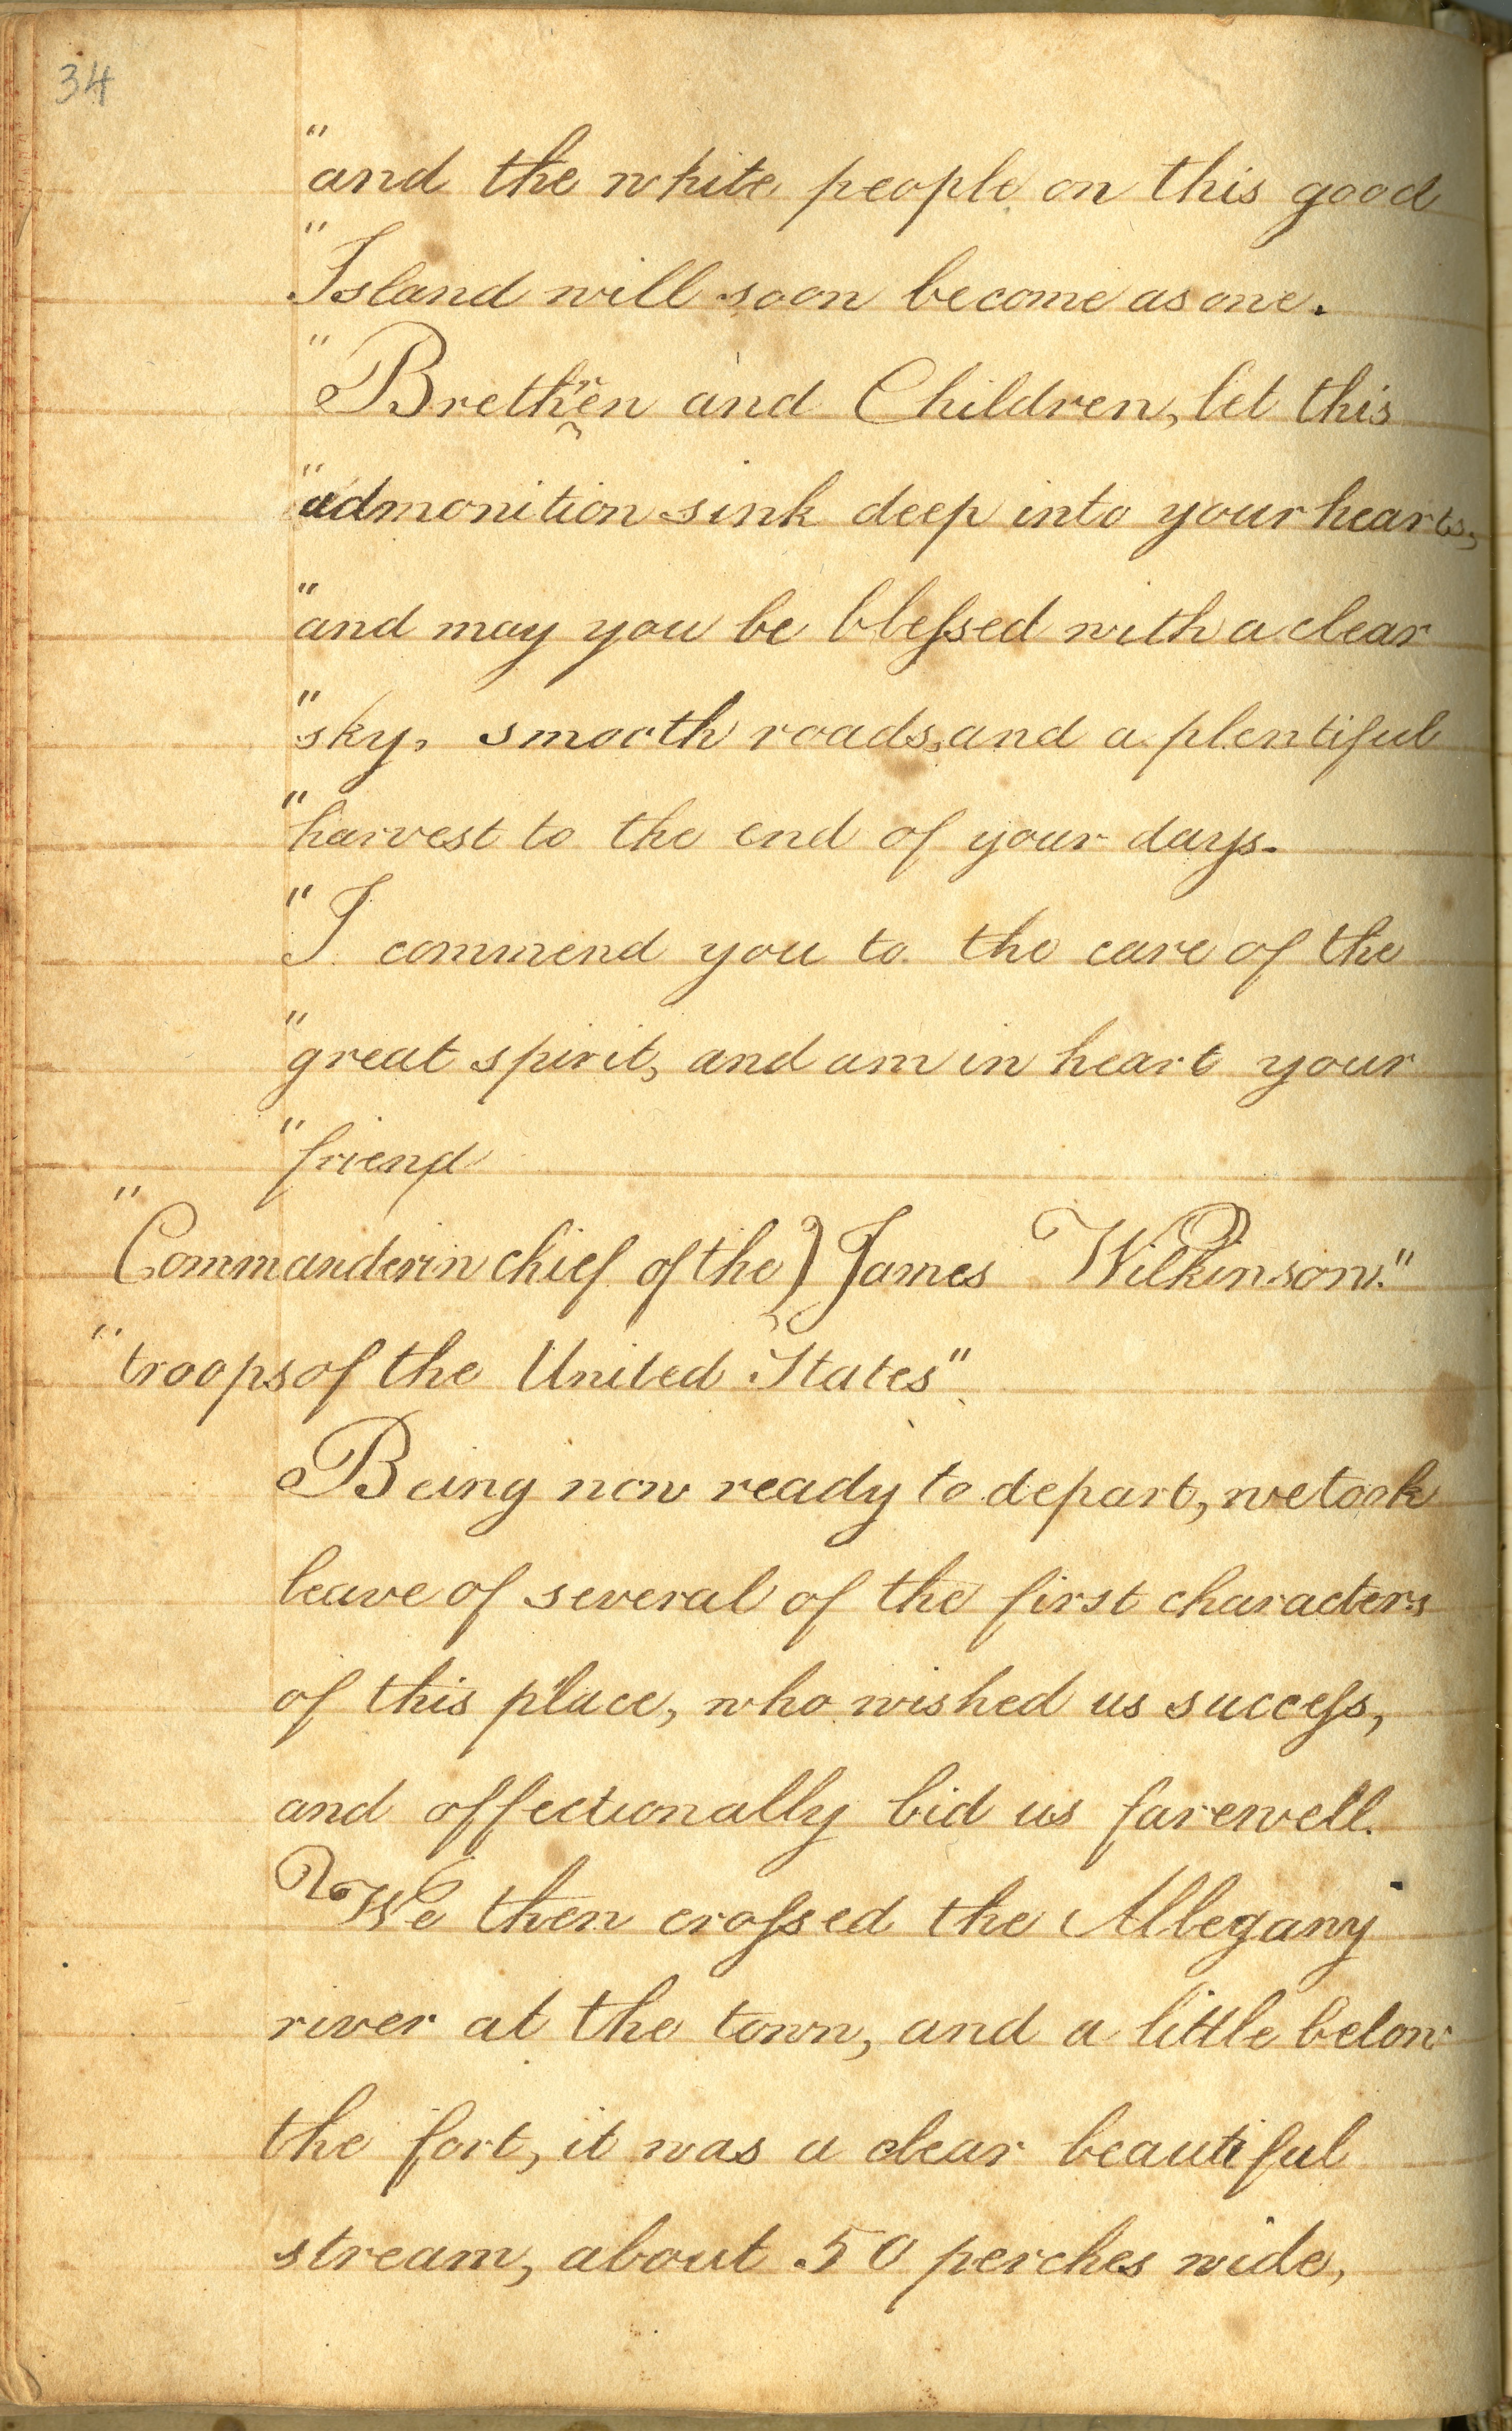 34
"and the white people on this good
"Island will soon become as one.
"Brethren and Children, let this
"admonition sink deep into your hearts,
"and may you be blessed with a clear
"sky, smooth roads, and a plentiful
"harvest to the end of your days.
"I commend you to the care of the
"great spirit, and am in heart your
"friend
"Commander in chief of the } James Wilkinson."
"troops of the United States"
Being now ready to depart, we took
leave of several of the first characters
of this place, who wished us success,
and affectionally bid us farewell.
We then crossed the Allegany
river at the town, and a little below
the fort, it was a clear beautiful
stream, about 50 perches wide,